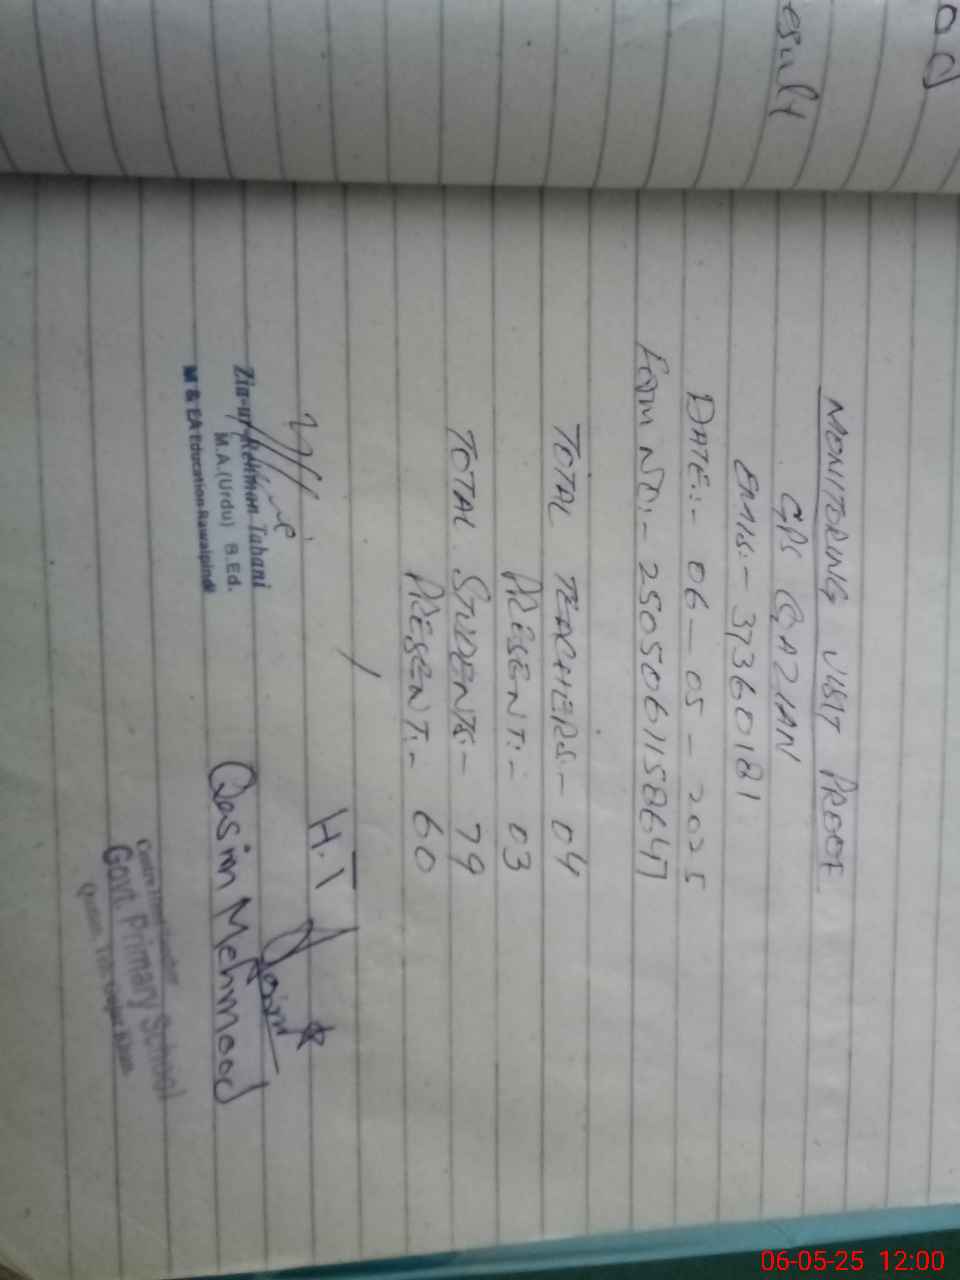 esult
MONITORING VISIT PROOF
GPS QAZIAN
EMIS:- 37360181
DATE:- 06-05-2025
FORM NO:- 2505061158647
TOTAL TEACHERS:- 04
PRESENT:- 03
TOTAL STUDENTS:- 79
PRESENT:- 60
Zia-ur-Rehman Tabani
M.A.(Urdu) B.Ed.
M & EA Education Rawalpindi
H.T
Qasim
Qasim Mehmood
Govt. Primary School
06-05-25 12:00